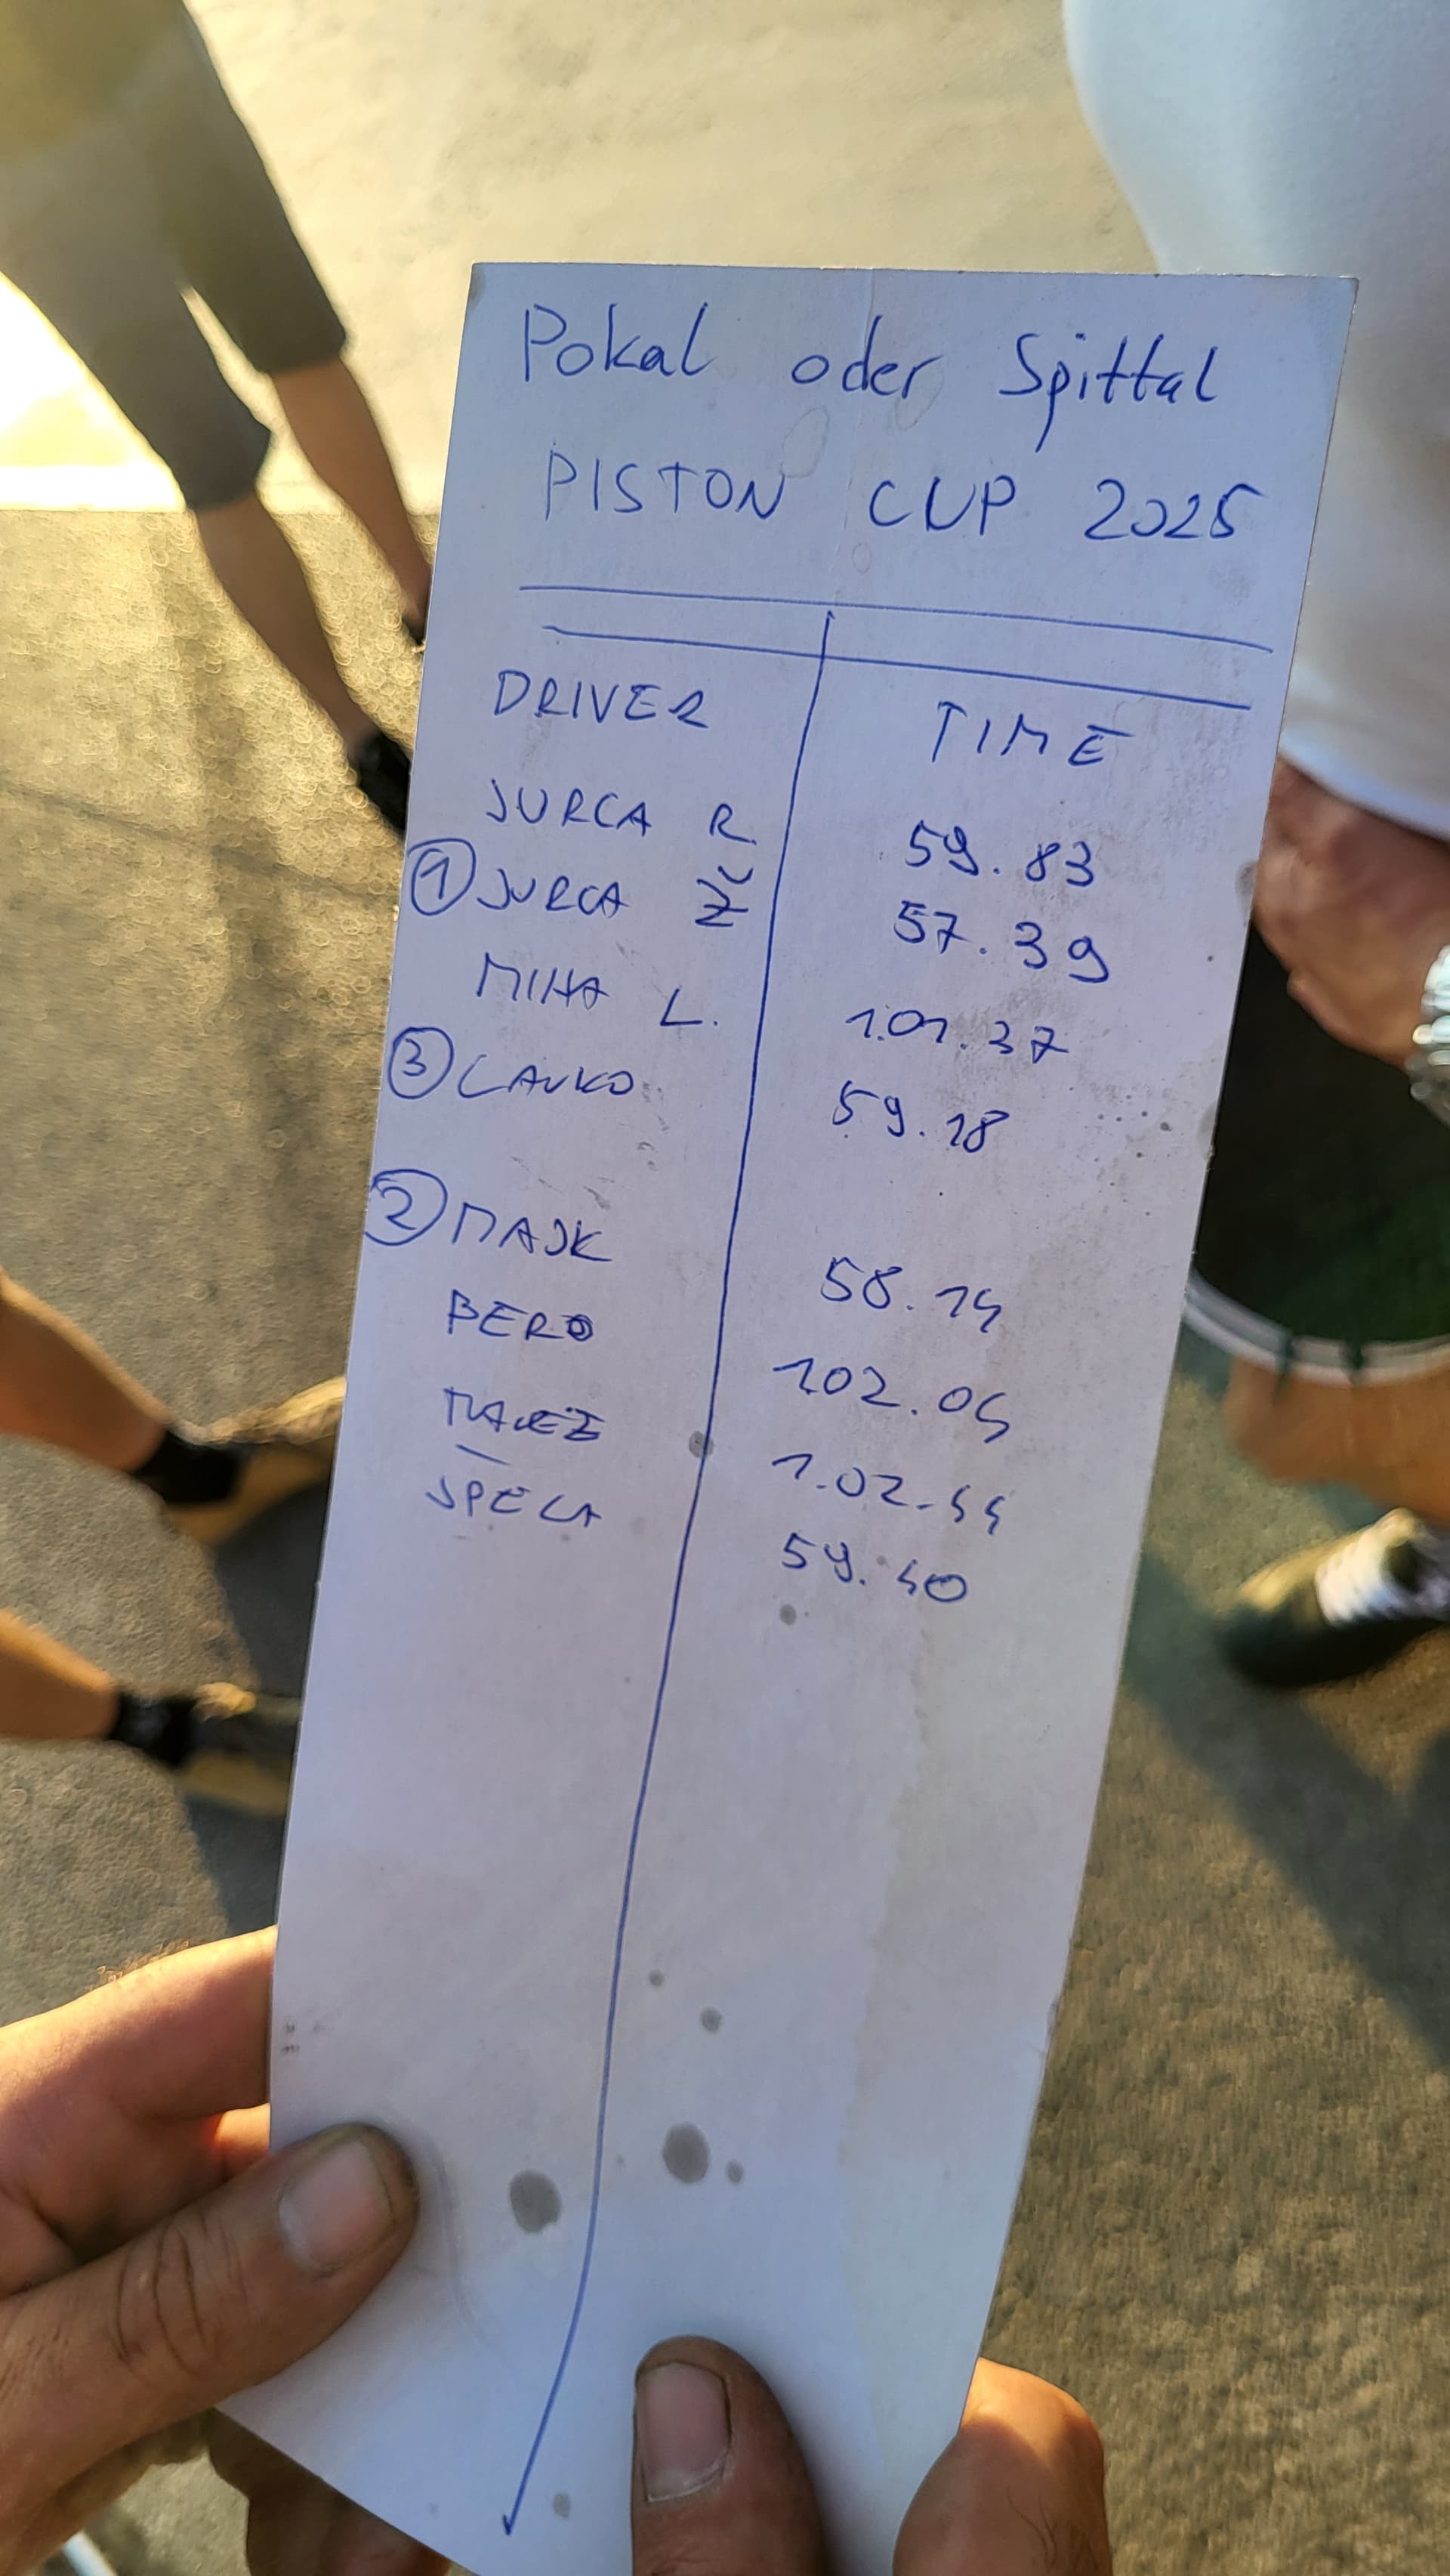 Pokal oder Spittal
PISTON CUP 2025
DRIVER TIME
JURCA R 59.83
① JURCA Ž 57.39
MIHA L. 1.01.37
③ LAVKO 59.18
② MAJK 58.14
BERO 102.04
1.02.44
SPELA 59.40